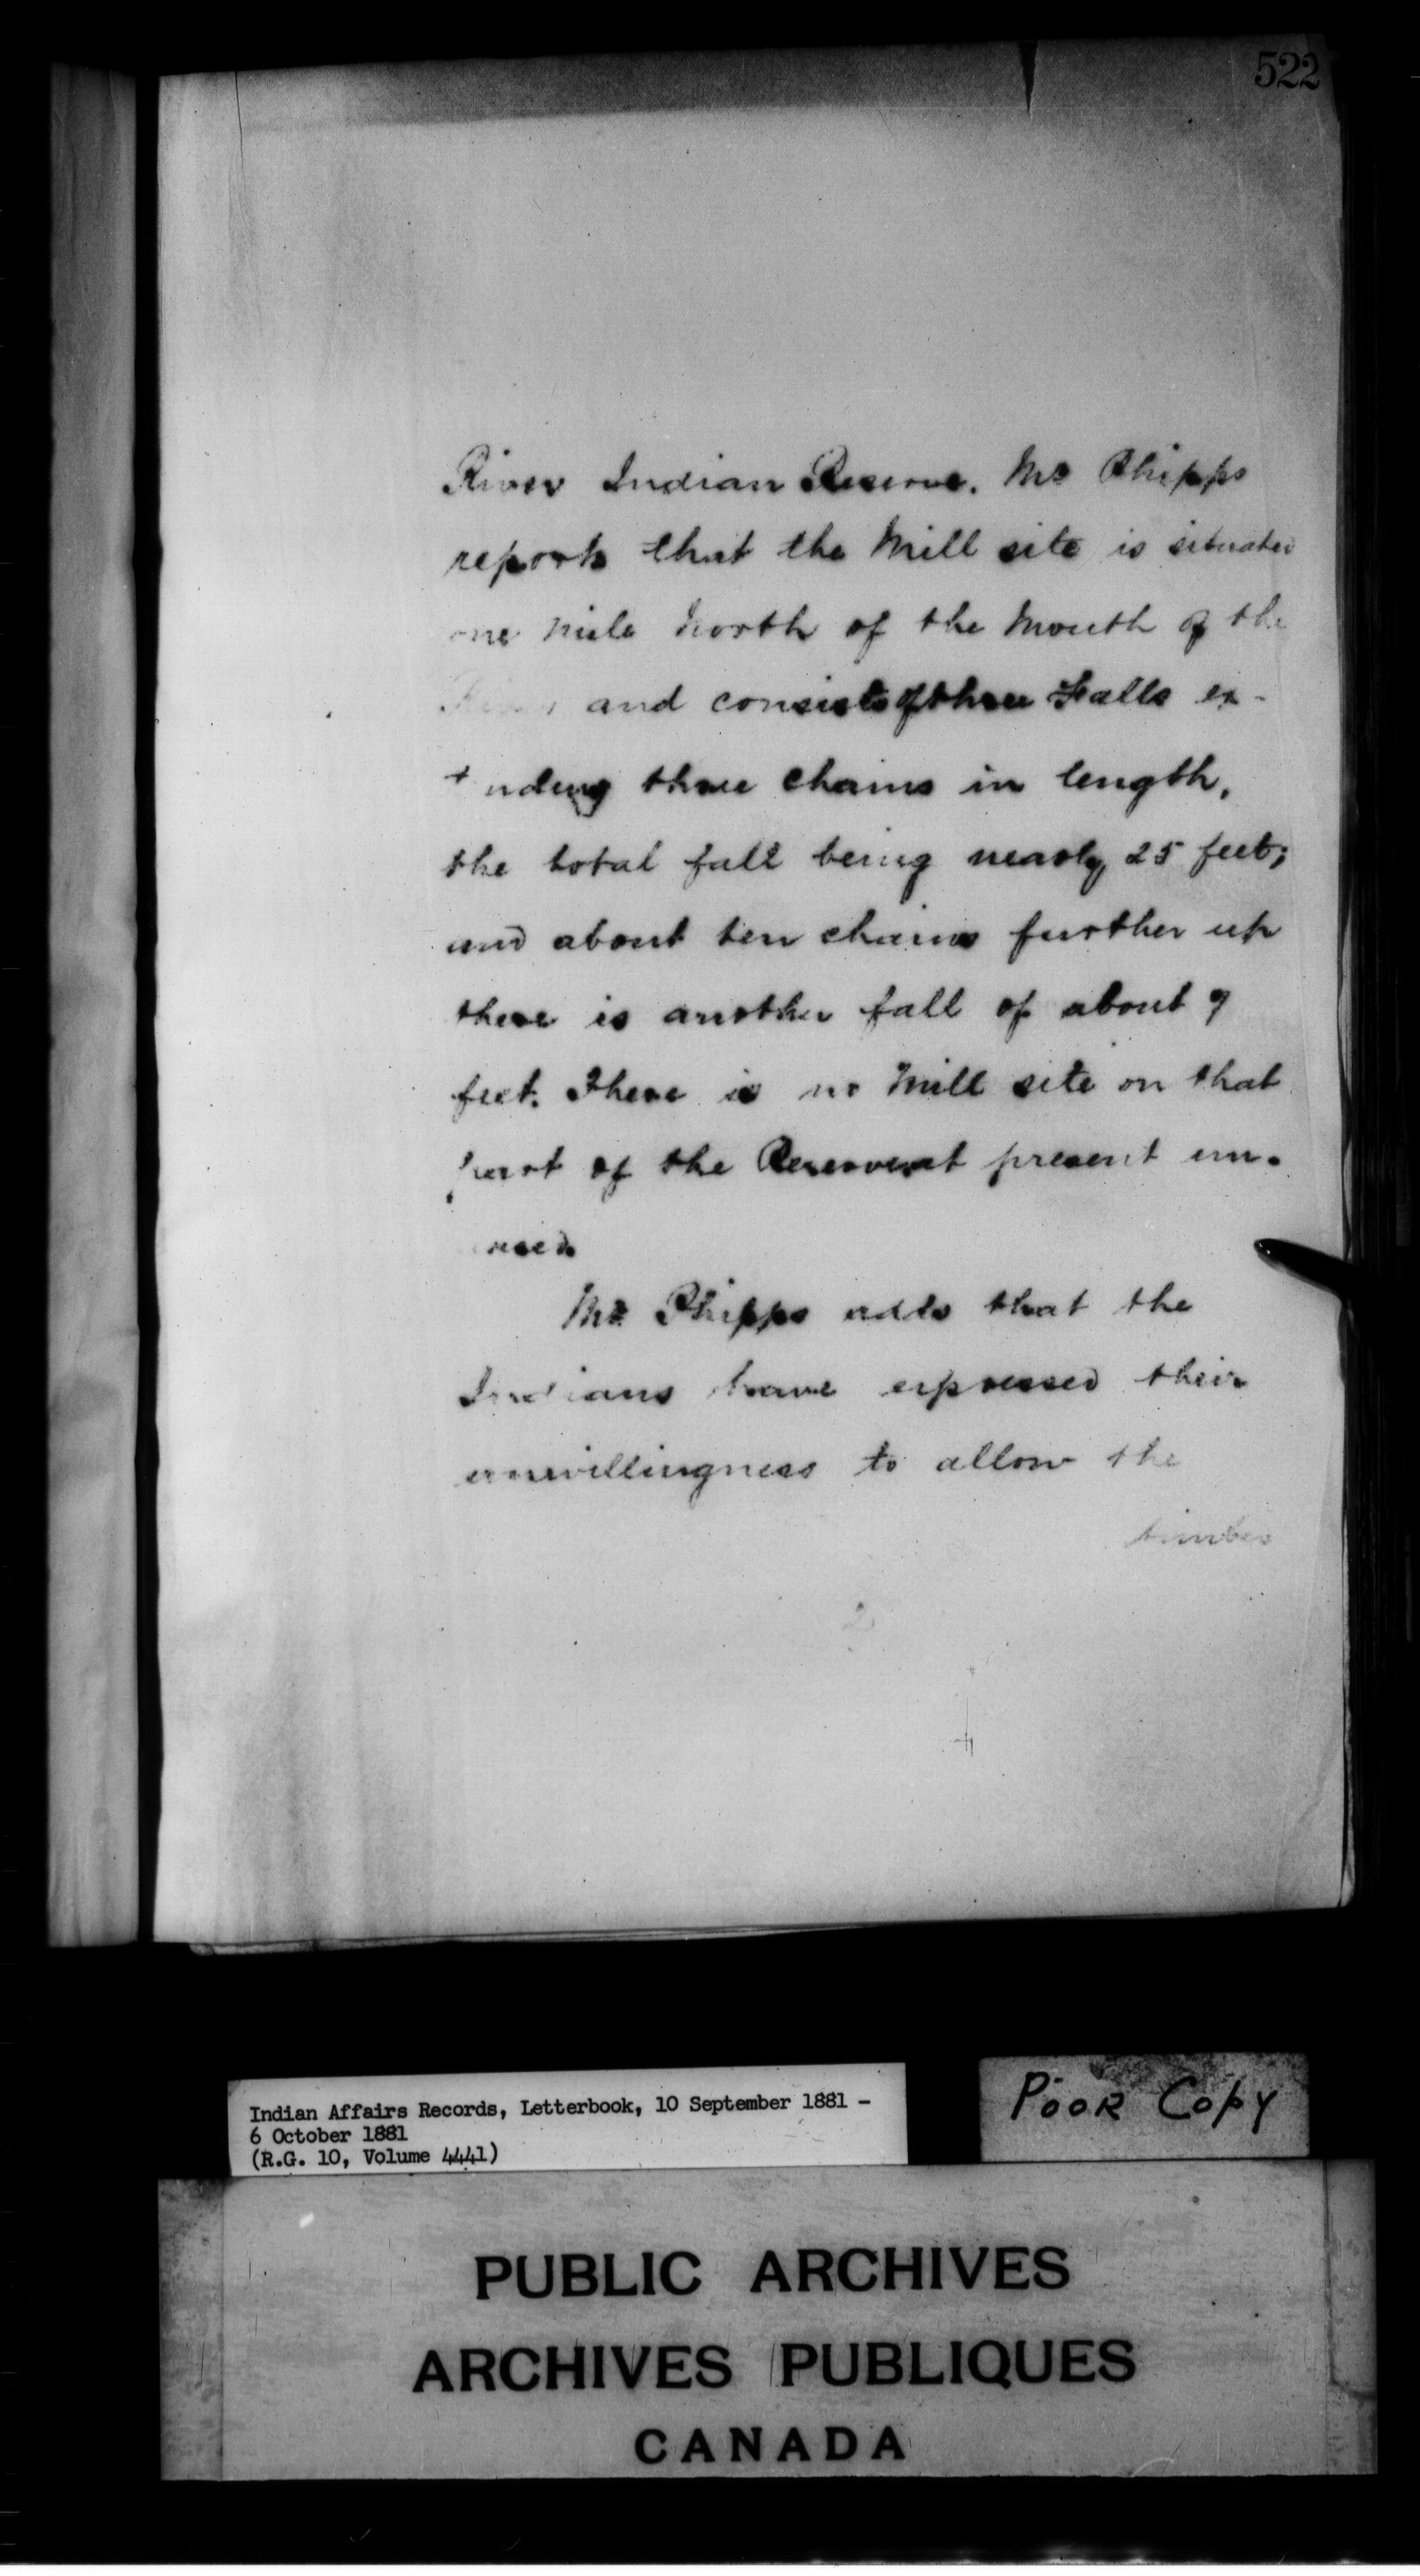 522
River Indian Reserve. Mr Phipps
reports that the Mill site is situated
one mile North of the Mouth of the
River and consists of three Falls ex-
tending three chains in length,
the total fall being nearly 25 feet;
and about ten chains further up
there is another fall of about 9
feet. There is no Mill site on that
part of the Reserve at present un-
used.
Mr. Phipps adds that the
Indians have expressed their
unwillingness to allow the
timber
Indian Affairs Records, Letterbook, 10 September 1881 -
6 October 1881
(R.G. 10, Volume 4441)
POOR COPY
PUBLIC ARCHIVES
ARCHIVES PUBLIQUES
CANADA